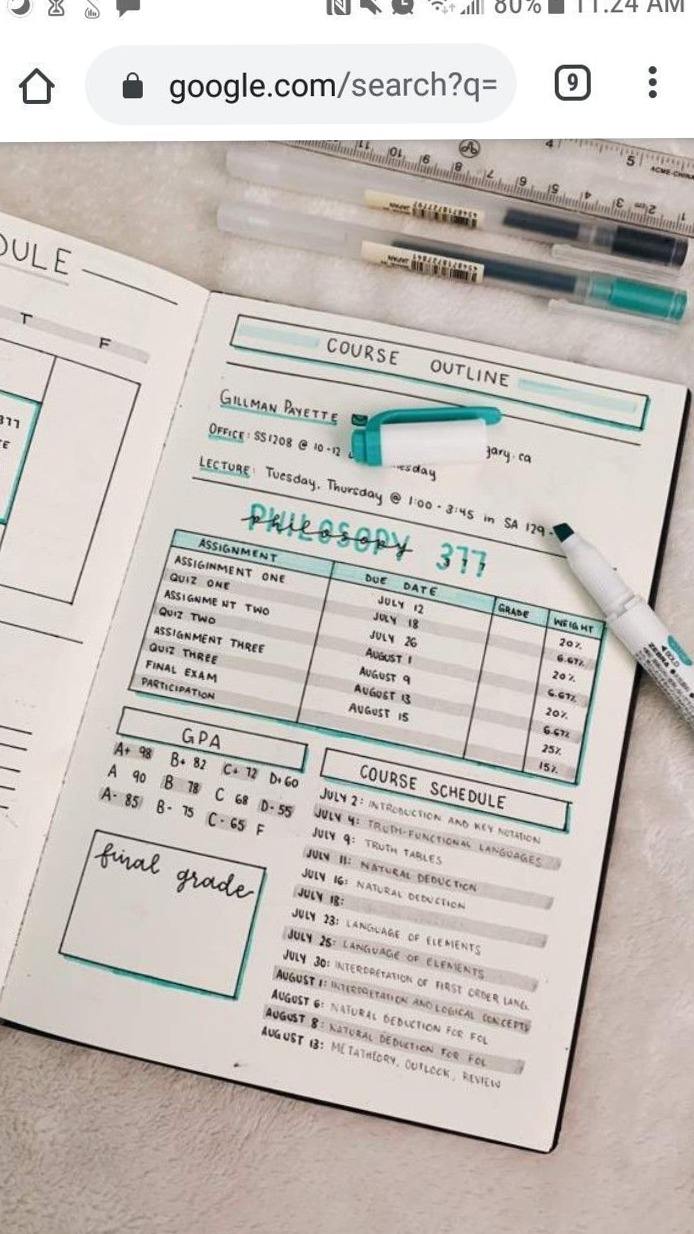 80% 11:24 AM
google.com/search?q=
9
DULE
T F
COURSE OUTLINE
GILLMAN PAYETTE
gary.ca
OFFICE: SS1208 @ 10-12
esday
LECTURE: Tuesday, Thursday @ 1:00 - 3:45 in SA 129
PHILOSOPY 377
philosopy
ASSIGNMENT DUE DATE GRADE WEIGHT
ASSIGINMENT ONE JULY 12 20%
QUIZ ONE JULY 18 6.67%
ASSIGNMENT TWO JULY 26 20%
QUIZ TWO AUGUST 1 6.67%
ASSIGNMENT THREE AUGUST 9 20%
QUIZ THREE AUGUST 13 6.67%
FINAL EXAM AUGUST 15 25%
PARTICIPATION 15%
GPA
A+ 98 B+ 82 C+ 72 D+ 60
A 90 B 78 C 68 D- 55
A- 85 B- 75 C- 65 F
final grade
COURSE SCHEDULE
JULY 2: INTRODUCTION AND KEY NOTATION
JULY 4: TRUTH-FUNCTIONAL LANGUAGES
JULY 9: TRUTH TABLES
JULY 11: NATURAL DEDUCTION
JULY 16: NATURAL DEDUCTION
JULY 18:
JULY 23: LANGUAGE OF ELEMENTS
JULY 25: LANGUAGE OF ELEMENTS
JULY 30: INTERPRETATION OF FIRST ORDER LANG.
AUGUST 1: INTERPRETATION AND LOGICAL CONCEPTS
AUGUST 6: NATURAL DEDUCTION FOR FOL
AUGUST 8: NATURAL DEDUCTION FOR FOL
AUGUST 13: METATHEORY, OUTLOOK, REVIEW
BOLD
ZEBRA